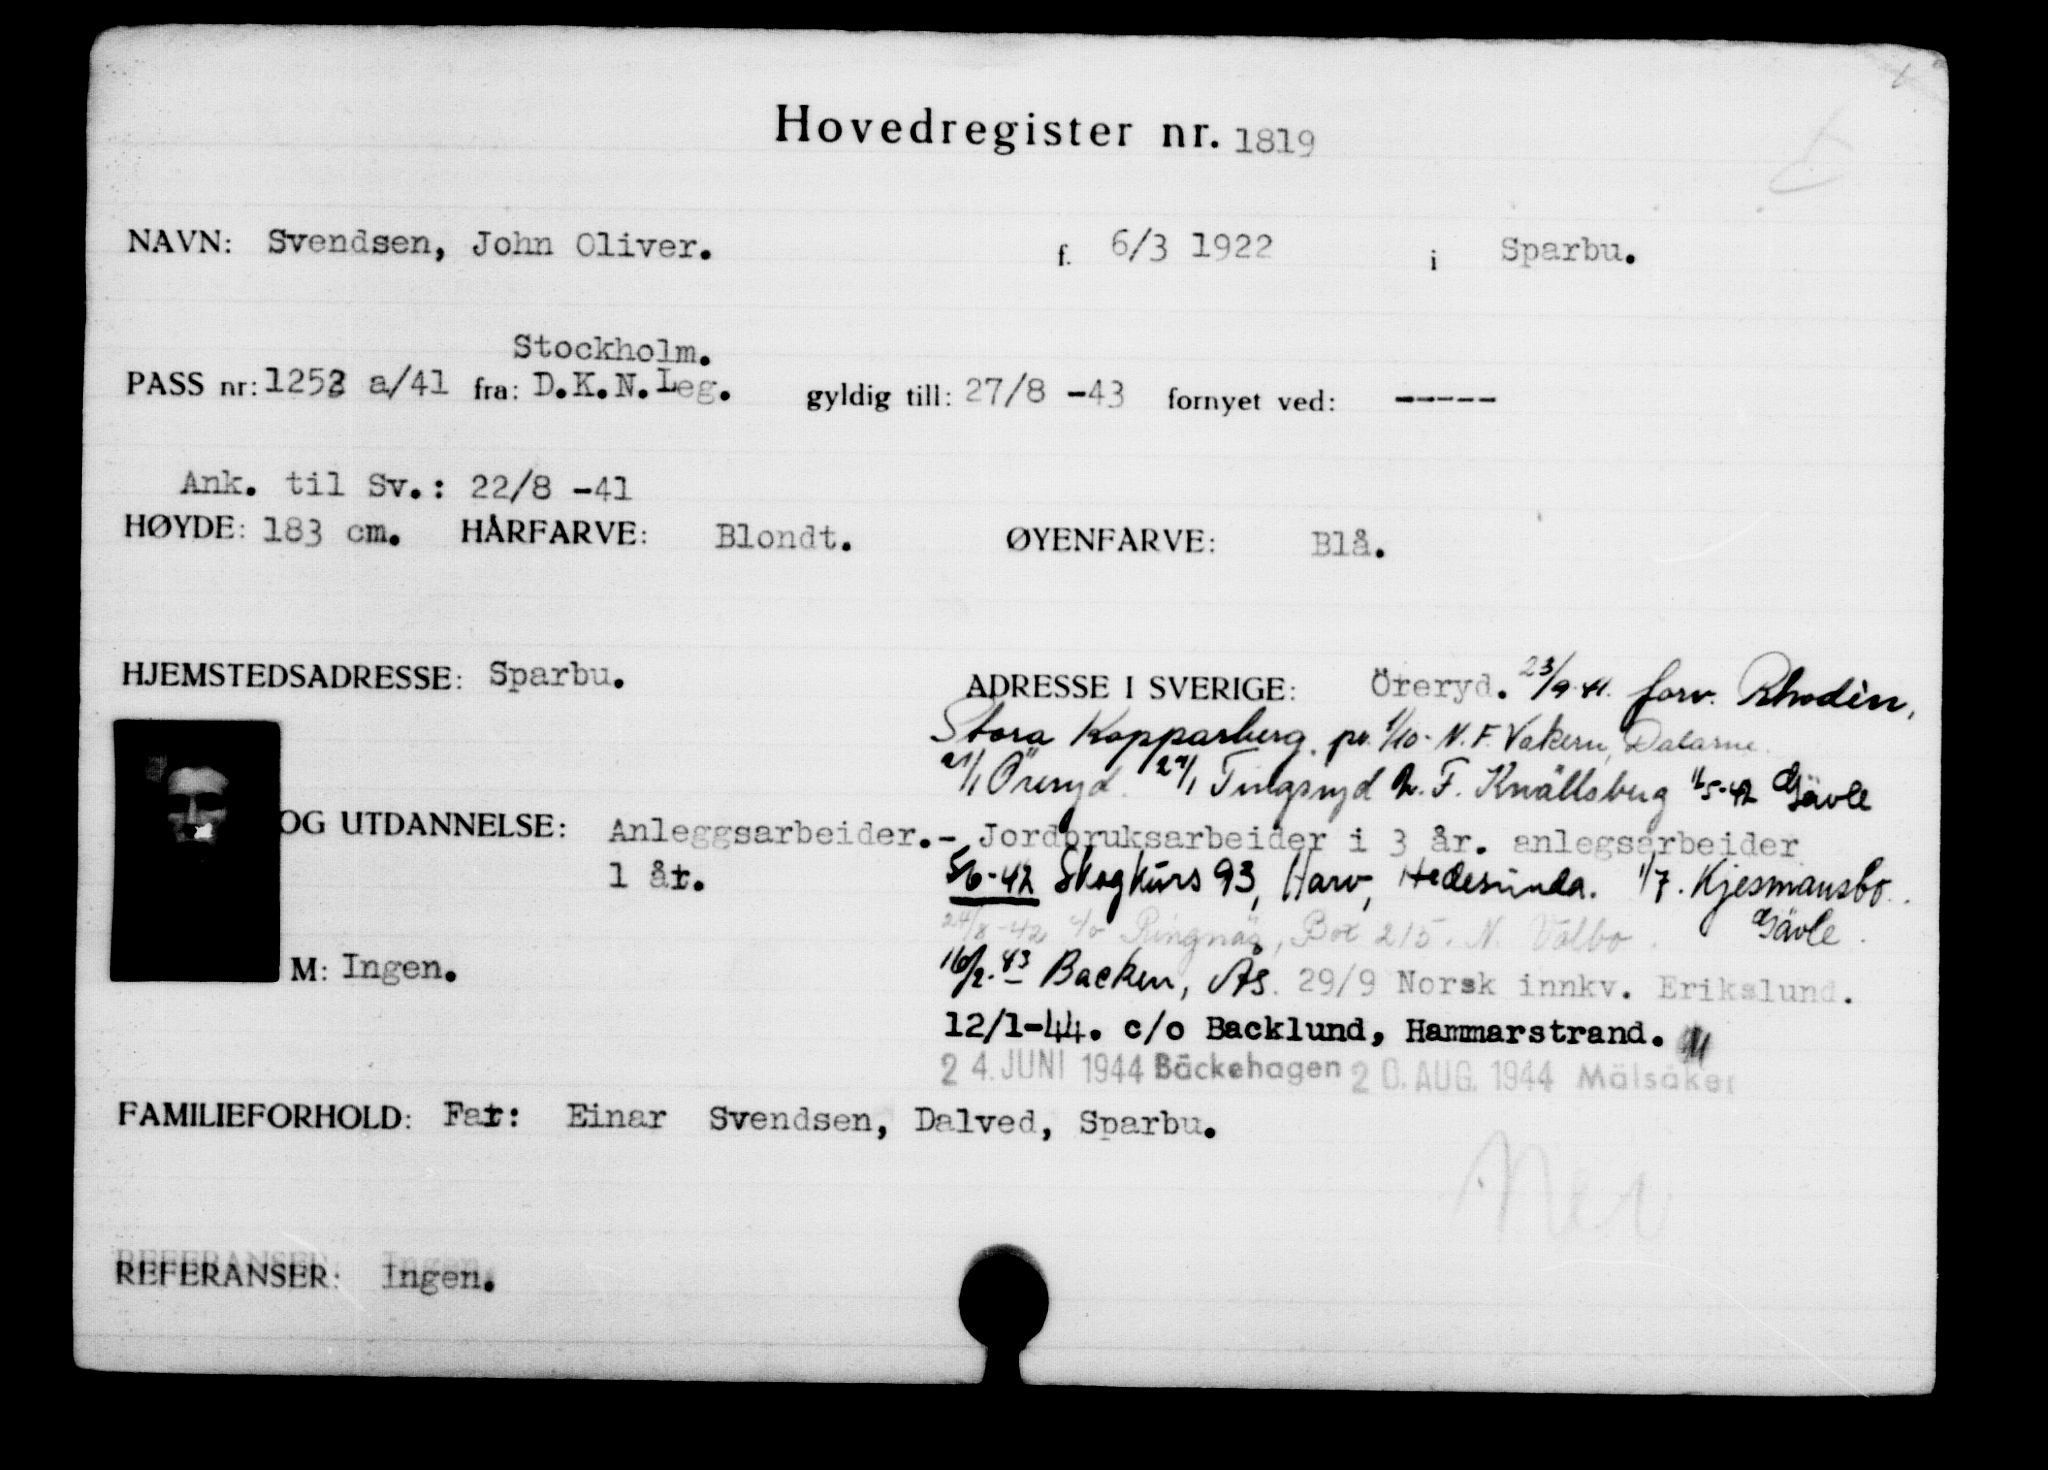 Hovedregister nr. 1819
NAVN: Svendsen, John Oliver. f. 6/3 1922 i Sparbu.
Stockholm.
PASS nr: 1252 a/41 fra: D.K.N.Leg. gyldig till: 27/8 -43 fornyet ved: -----
Ank. til Sv.: 22/8 -41
HØYDE: 183 cm. HÅRFARVE: Blondt. ØYENFARVE: Blå.
HJEMSTEDSADRESSE: Sparbu. ADRESSE I SVERIGE: Öreryd. 23/9-41. forv. Rhodèn,
Stora Kopparberg. pr. 1/10- N.F. Vakern, Dalarne.
21/1 Öreryd. 24/1 Tingsryd N.F. Knällsberg 11/5-42 Gävle
OG UTDANNELSE: Anleggsarbeider.- Jordbruksarbeider i 3 år. anlegsarbeider
1 år. 5/6-42 Skogkurs 93, Harv, Hedesunda. 1/7. Kjesmansbo.
24/8-42 c/o Ringnäs, Box 215. N. Valbo. Gävle.
M: Ingen. 16/2.43 Backen, Ås. 29/9 Norsk innkv. Erikslund.
12/1-44. c/o Backlund, Hammarstrand.
24. JUNI 1944 Bäckehagen 20. AUG. 1944 Mälsåker
FAMILIEFORHOLD: Far: Einar Svendsen, Dalved, Sparbu.
REFERANSER: Ingen.